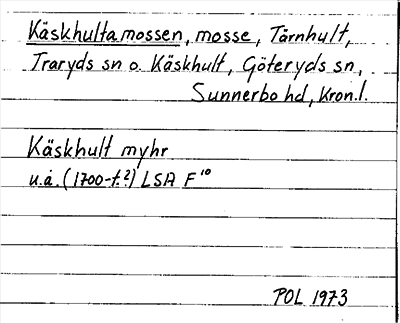 Käskhultamossen, mosse, Törnhult,
Traryds sn o. Käskhult, Göteryds sn,
Sunnerbo hd, Kron.l.
Käskhult myhr
u.å. (1700-t.?) LSA F¹⁰
POL 1973